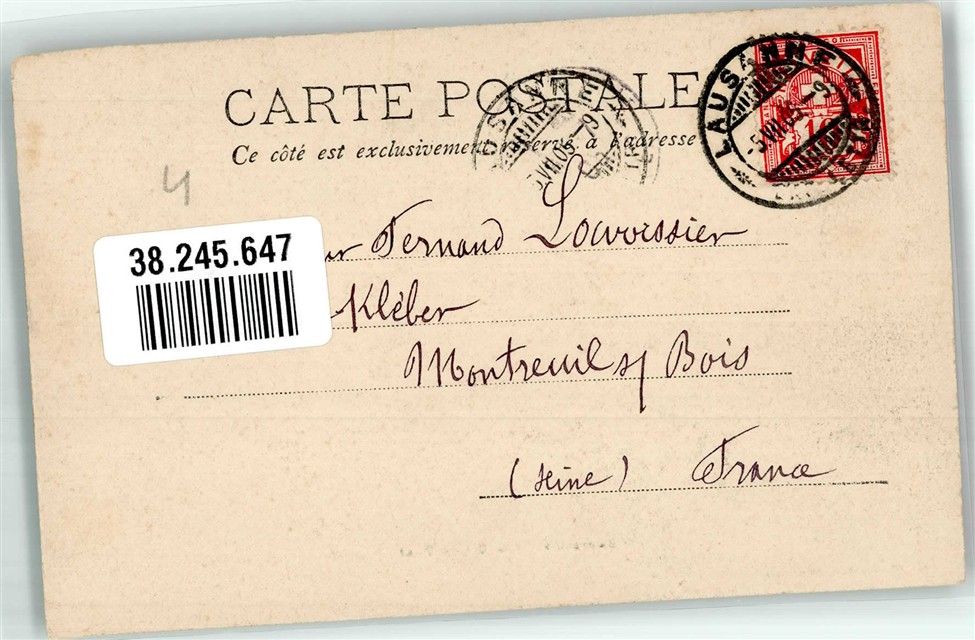 CARTE POSTALE
Ce côté est exclusivement réservé à l'adresse
LAUSANNE
5.VII.05.-9
4
38.245.647
Fernand
Kléber
Montreuil s/ Bois
(Seine) France